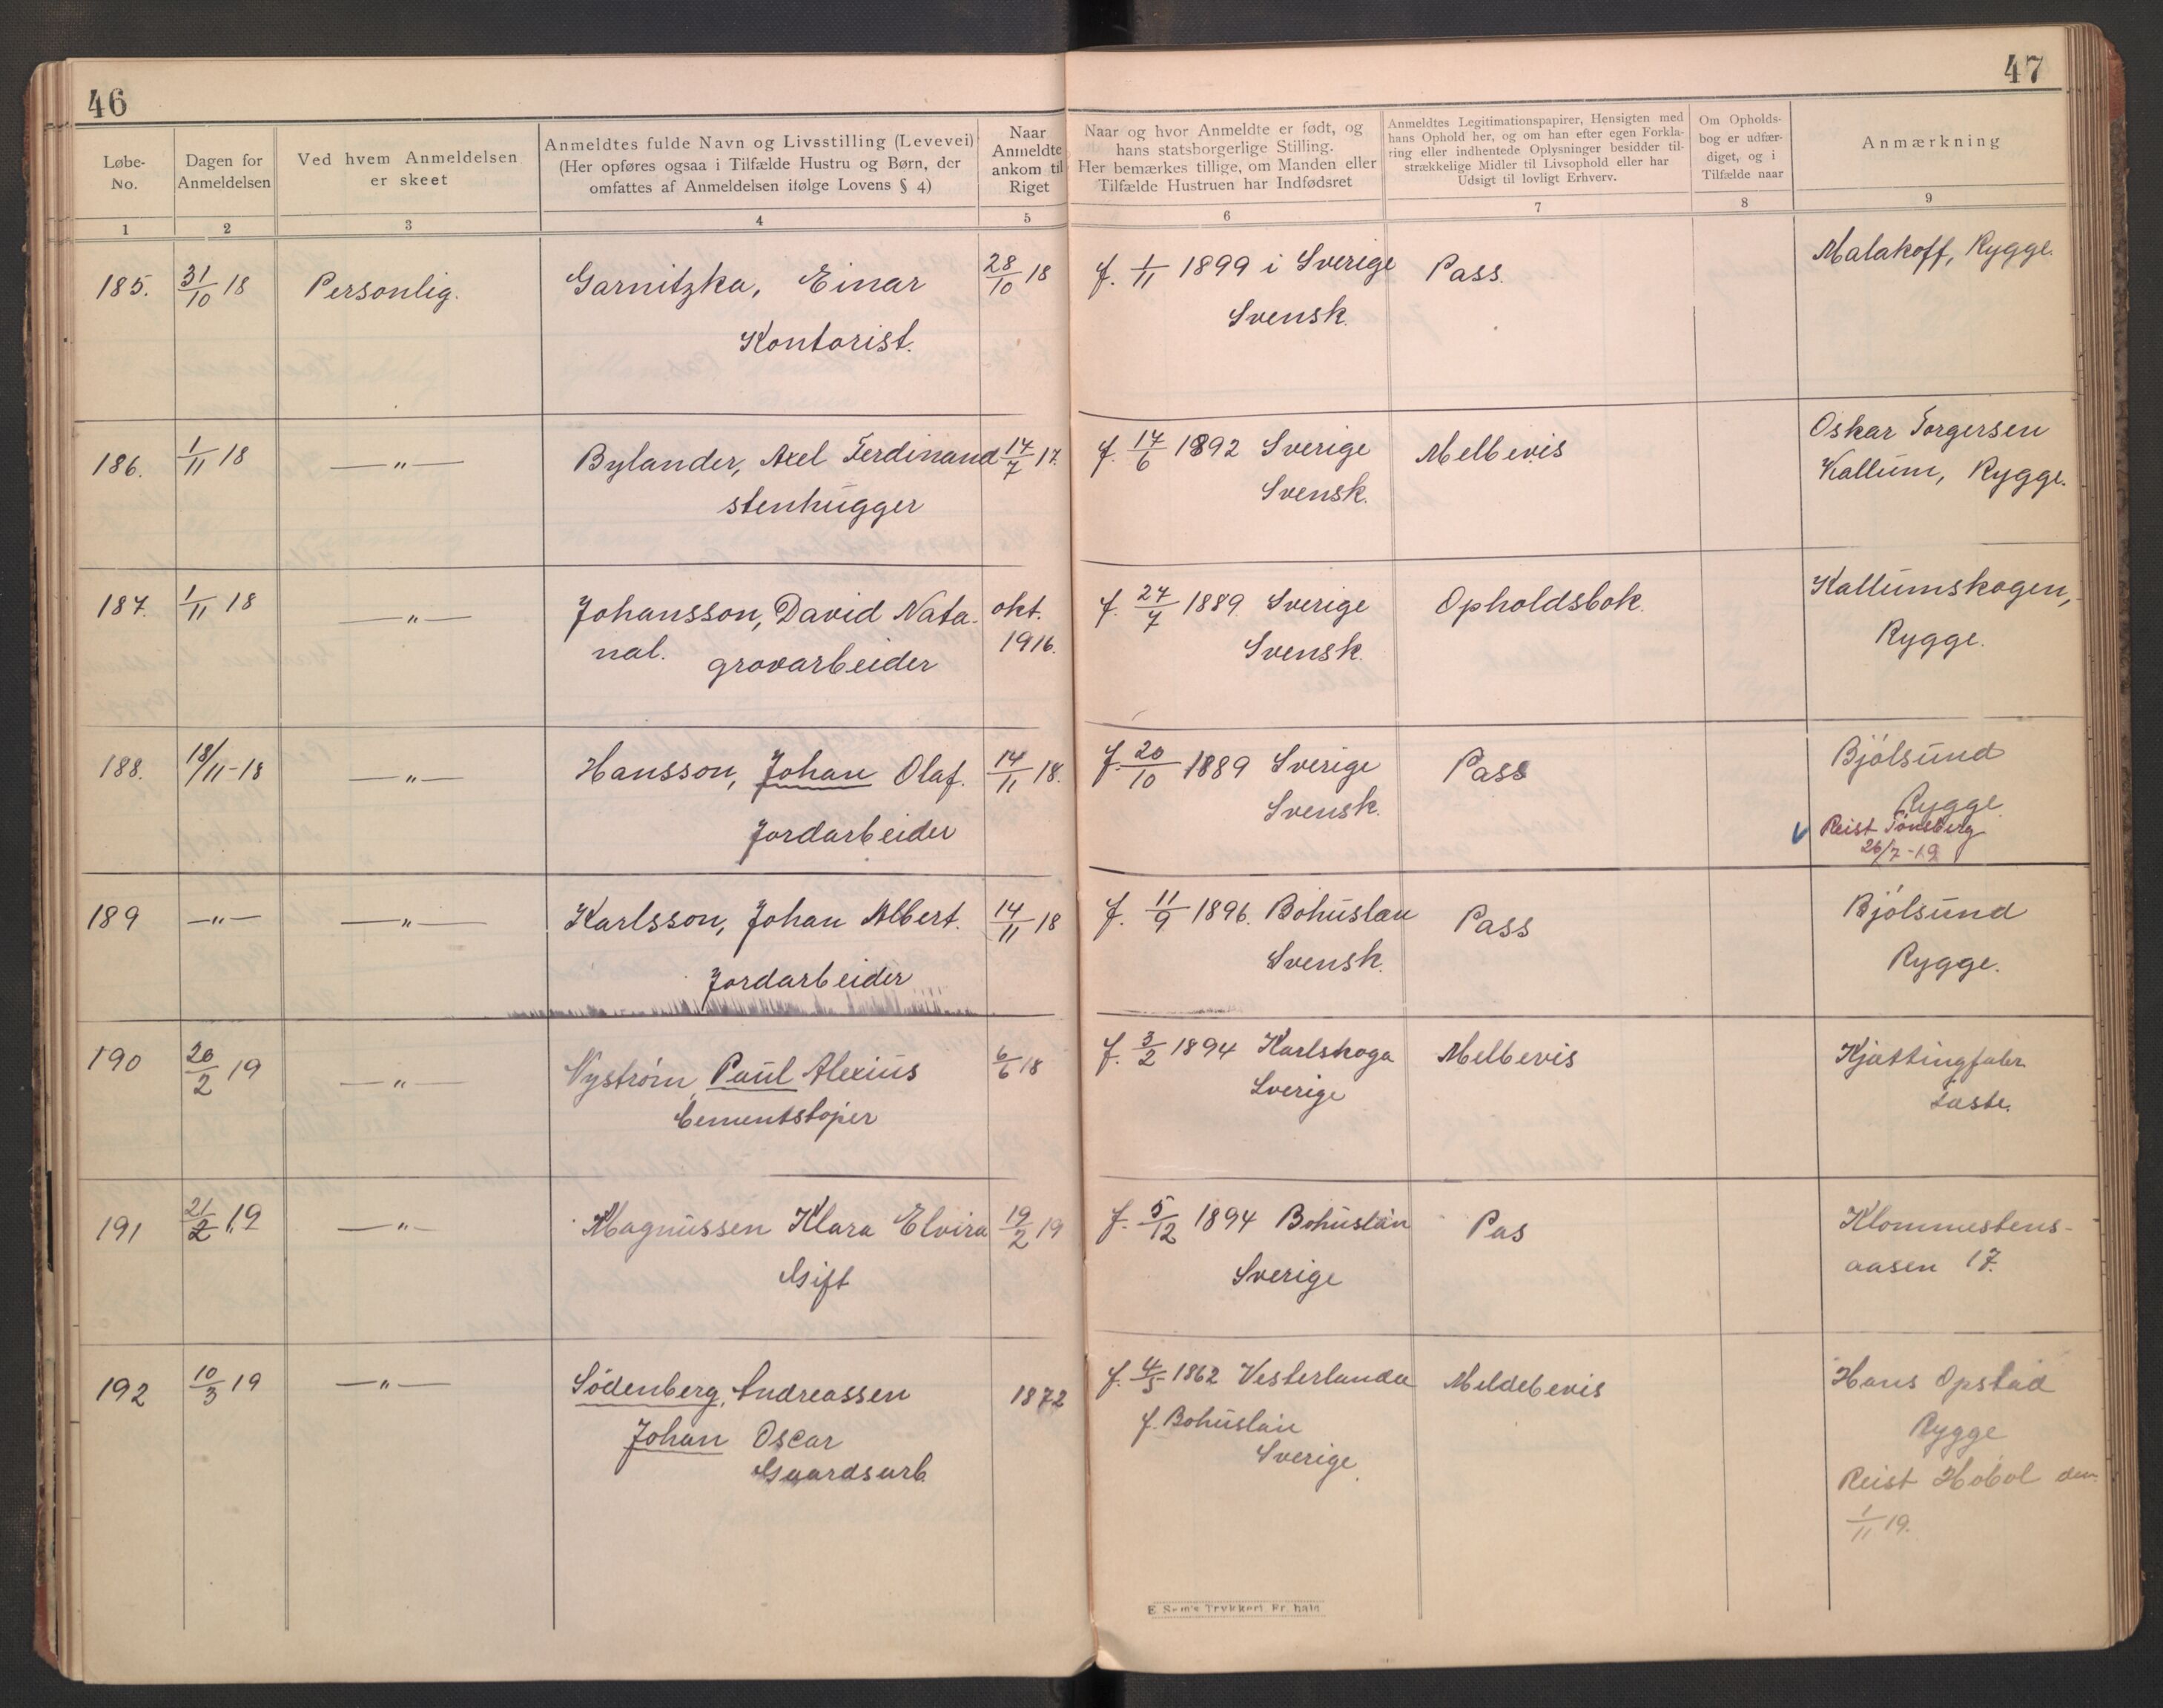 46
47
Løbe-
No.
Dagen for
Anmeldelsen
Ved hvem Anmeldelsen
er skeet
Anmeldtes fulde Navn og Livsstilling (Levevei)
(Her opføres ogsaa i Tilfælde Hustru og Børn, der
omfattes af Anmeldelsen ifølge Lovens § 4)
Naar
Anmeldte
ankom til
Riget
Naar og hvor Anmeldte er født, og
hans statsborgerlige Stilling.
Her bemærkes tillige, om Manden eller
Tilfælde Hustruen har Indfødsret
Anmeldtes Legitimationspapirer, Hensigten med
hans Ophold her, og om han efter egen Forkla-
ring eller indhentede Oplysninger besidder til-
strækkelige Midler til Livsophold eller har
Udsigt til lovligt Erhverv.
Om Opholds-
bog er udfær-
diget, og i
Tilfælde naar
Anmærkning
1 2 3 4 5 6 7 8 9
185. 31/10 18 Personlig. Garnitzka, Einar 28/10 18 f. 1/11 1899 i Sverige Pass. Malakoff, Rygge.
Kontorist. Svensk.
186. 1/11 18 —"— Bylander, Axel Ferdinand 17/7 17. f. 17/6 1892 Sverige Melbevis Oskar Torgersen
stenhugger Svensk. Kallum, Rygge.
187. 1/11 18 —"— Johansson, David Nata- okt. f. 27/7 1889 Sverige Opholdsbok. Kallumskogen,
nal. gravarbeider 1916. Svensk. Rygge.
188. 18/11-18 —"— Hansson, Johan Olaf. 14/11 18. f. 20/10 1889 Sverige Pass Bjölsund
Jordarbeider Svensk. Rygge
Reist Tönsberg
26/7-19
189 —"— —"— Karlsson, Johan Albert. 14/11 18 f. 11/9 1896. Bohuslän Pass Bjölsund
Jordarbeider Svensk. Rygge.
190 20/2 19 —"— Nyström, Paul Alexius 6/6 18 f. 3/2 1894 Karlskoga Melbevis Kjættingfabr.
Cementstöper Sverige
191 21/2 19 —"— Magnussen Klara Elvira 19/2 19 f. 5/12 1894 Bohuslän Pas Klommestens-
Gift Sverige aasen 17.
192 10/3 19 —"— Södenberg, Andreassen 1872 f. 4/5 1862 Vesterlanda Meldebevis Hans Opstad
Johan Oscar f. Bohuslän Rygge
Gaardsarb. Sverige Reist Hobøl den
1/11 19.
E. Sem's Trykkeri Fr.hald